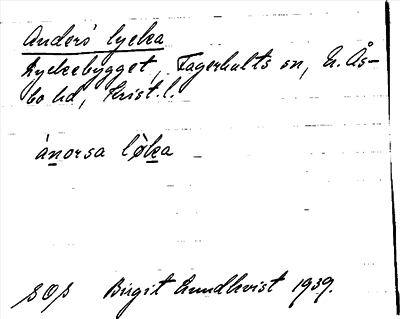 Anders' lycka
Lyckebygget, Fagerhults sn, N. Ås-
bo hd, Krist. l.
ánorsa lȍka
SOS Birgit Lundkvist 1939.